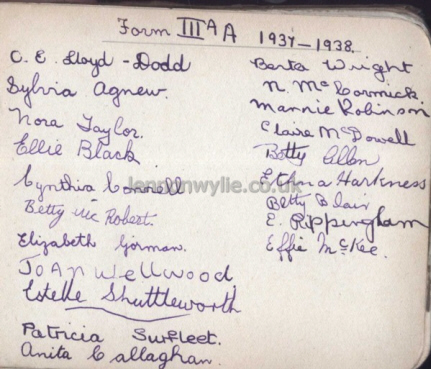 Form IIIA A 1937-1938.
O. E. Lloyd-Dodd
Sylvia Agnew.
Nora Taylor.
Ellie Black
Cynthia Connell
Betty Robert.
Elizabeth Gorman.
Joan Wellwood
Estelle Shuttleworth
Patricia Surfleet.
Anita Callaghan.
Berta Wright
N. McCormick
Mannie Robinson
Claire McDowell
Betty Allen
Etna Harkness
Betty Blair
E. Rippingham
Effie McKee.
lennonwylie.co.uk